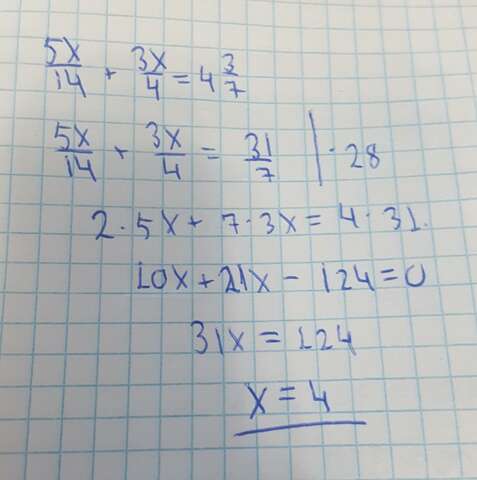 5x/14 + 3x/4 = 4 3/7
5x/14 + 3x/4 = 31/7 | · 28
2 · 5x + 7 · 3x = 4 · 31.
10x + 21x - 124 = 0
31x = 124
x = 4